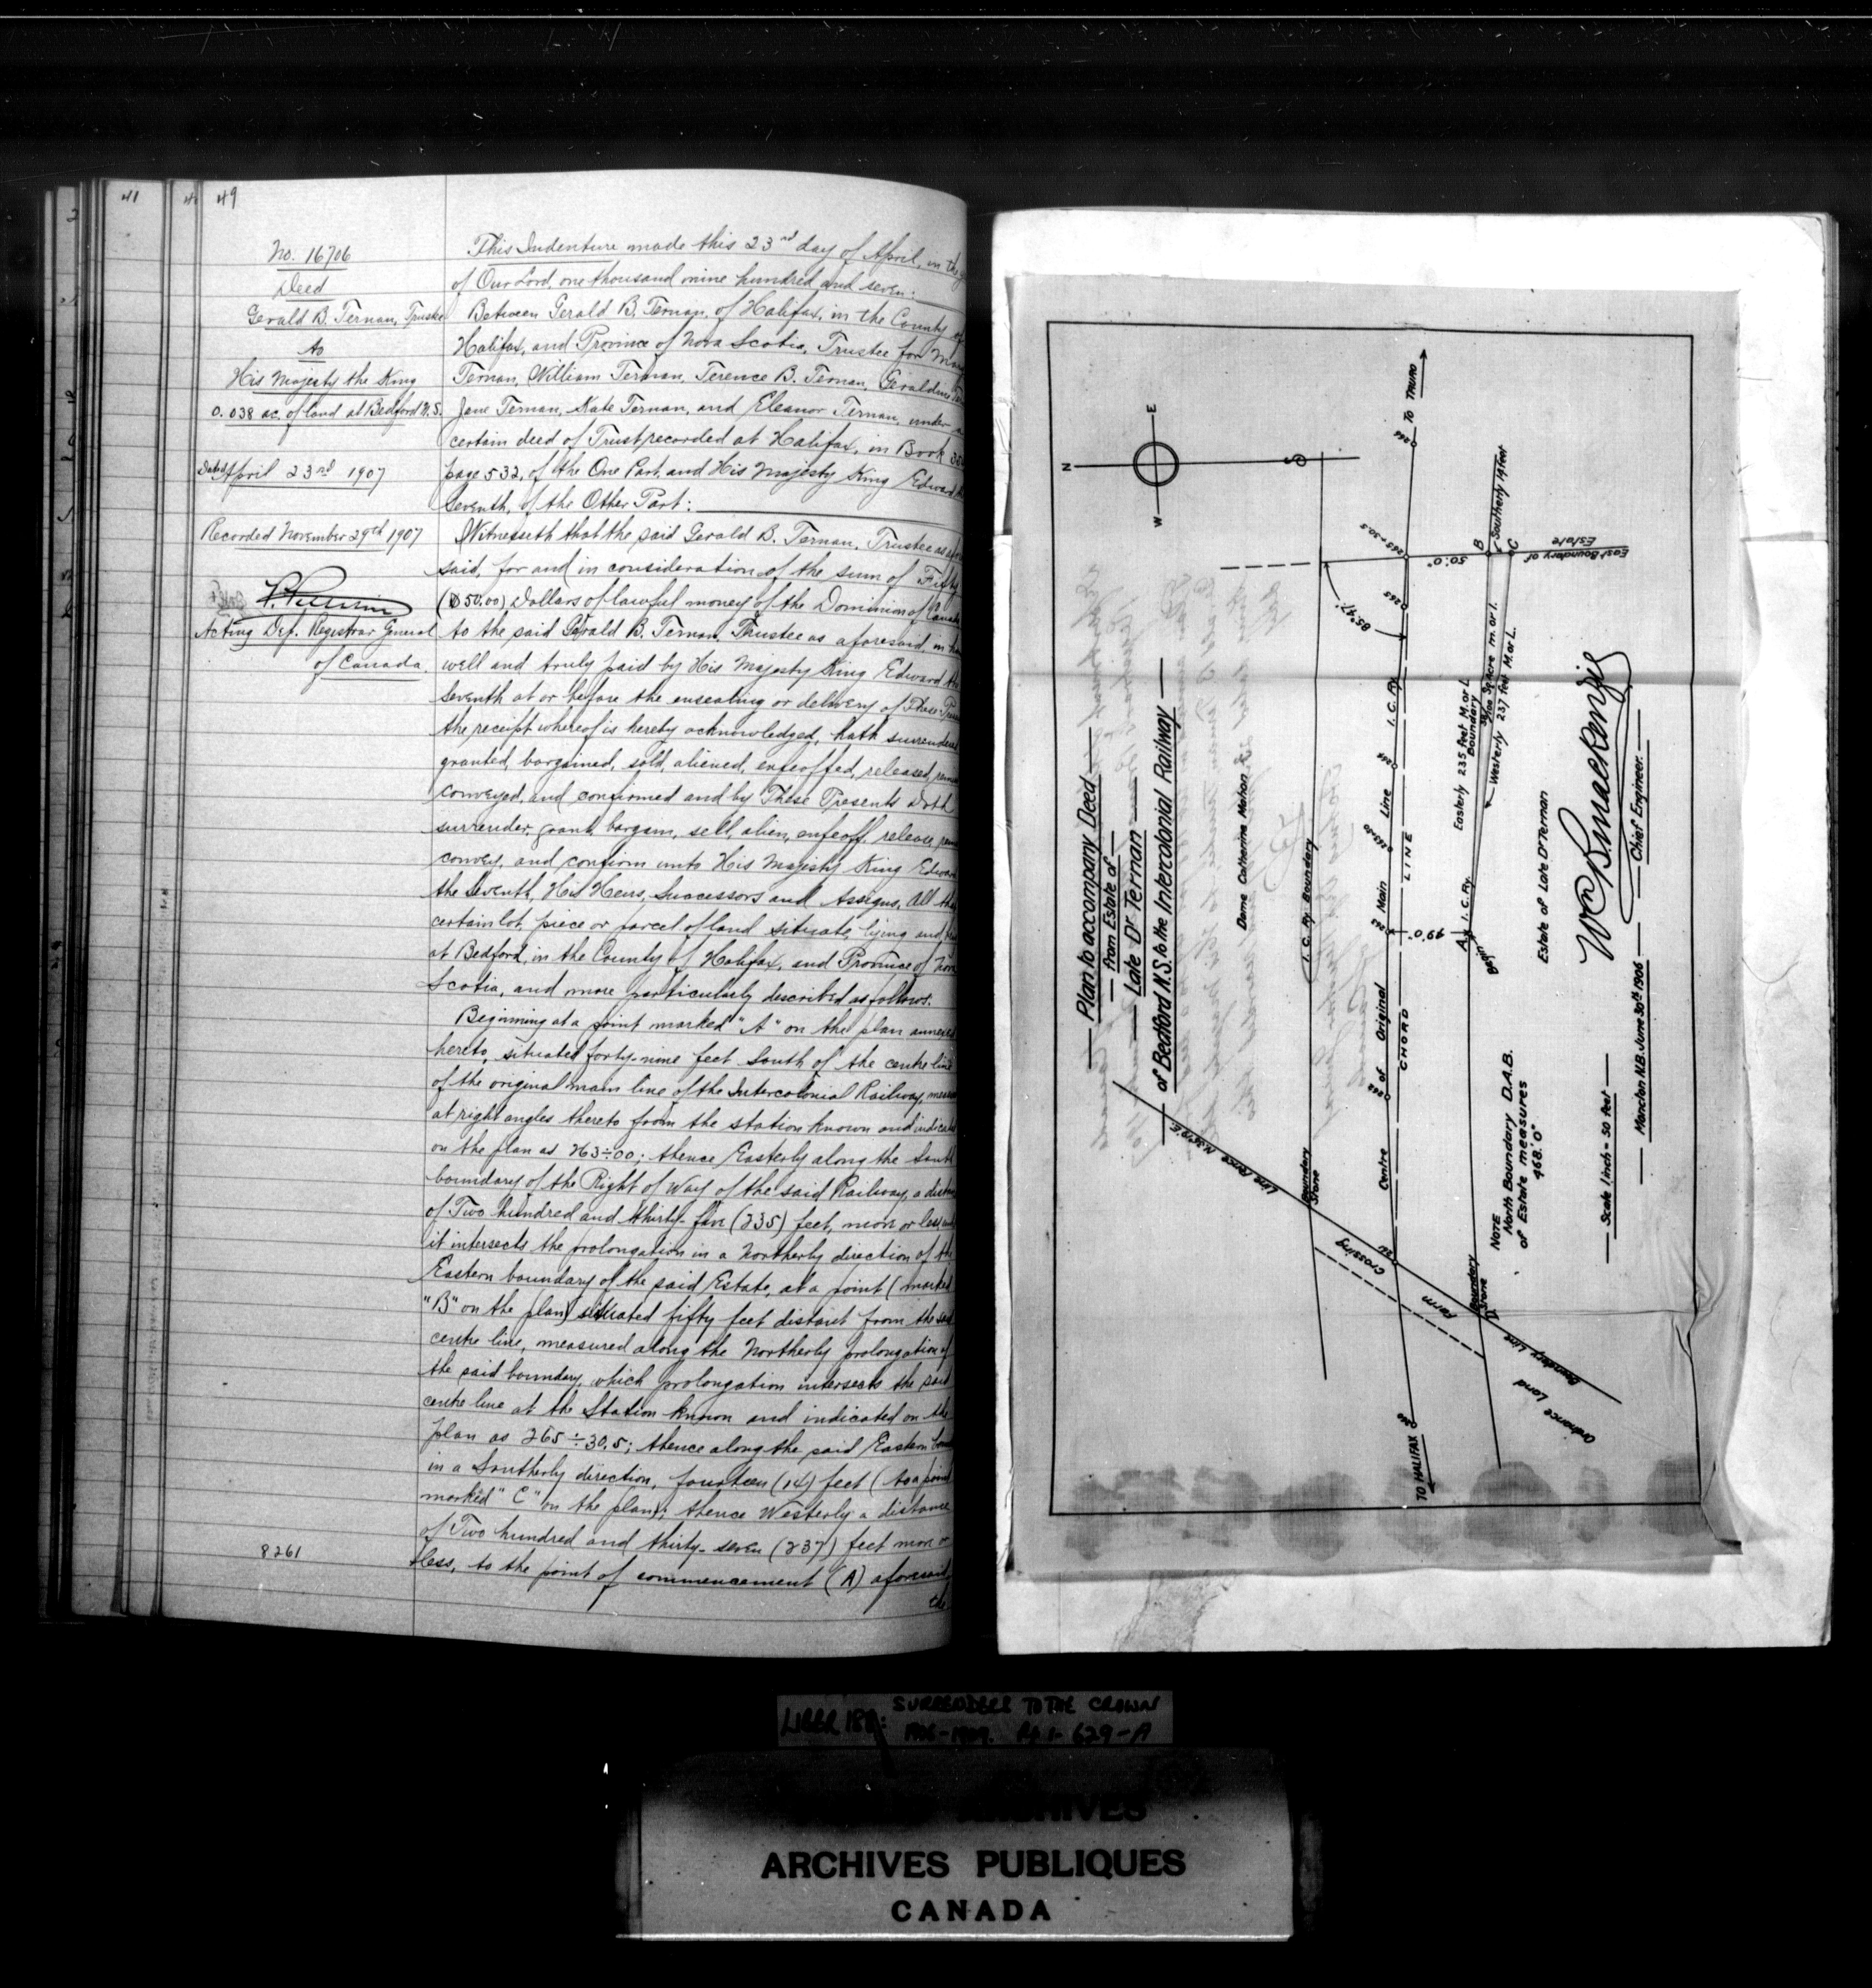 41
49
No. 16706
Deed
Gerald B. Ternan, Trustee
to
His Majesty the King
0.038 ac. of land at Bedford N.S.
Dated April 23rd 1907
Recorded November 29th 1907
Acting Dep. Registrar General
of Canada.
8261
This Indenture made this 23rd day of April, in the
of Our Lord one thousand nine hundred and seven:
Between Gerald B. Ternan, of Halifax, in the County of
Halifax, and Province of Nova Scotia, Trustee for
Ternan, William Ternan, Terence B. Ternan, Geraldine
Jane Ternan, Kate Ternan, and Eleanor Ternan, under a
certain deed of Trust recorded at Halifax, in Book
page 532, of the One Part, and His Majesty King Edward the
Seventh, of the Other Part:
Witnesseth that the said Gerald B. Ternan, Trustee as
said, for and in consideration of the sum of Fifty
($50.00) Dollars of lawful money of the Dominion of Canada
to the said Gerald B. Ternan, Trustee as aforesaid, in
well and truly paid by His Majesty King Edward the
Seventh at or before the ensealing or delivery of These
the receipt whereof is hereby acknowledged, hath surrendered
granted, bargained, sold, aliened, enfeoffed, released,
conveyed, and confirmed and by These Presents doth
surrender, grant, bargain, sell, alien, enfeoff, release,
convey, and confirm unto His Majesty King Edward
the Seventh, His Heirs, Successors and Assigns, All that
certain lot, piece or parcel of land situate, lying and
at Bedford, in the County of Halifax, and Province of Nova
Scotia, and more particularly described as follows.
Beginning at a point marked "A" on the plan annexed
hereto, situated forty-nine feet South of the centre line
of the original main line of the Intercolonial Railway,
at right angles thereto from the station known and indicated
on the plan as 263÷00; thence Easterly along the South
boundary of the Right of Way of the said Railway, a distance
of Two hundred and thirty-five (235) feet, more or less
it intersects the prolongation in a Northerly direction of the
Eastern boundary of the said Estate, at a point (marked
"B" on the plan) situated fifty feet distant from the said
centre line, measured along the Northerly prolongation of
the said boundary, which prolongation intersects the said
centre line at the Station known and indicated on the
plan as 265÷30.5; thence along the said Eastern
in a Southerly direction, fourteen (14) feet (to a point
marked "C" on the plan); thence Westerly a distance
of Two hundred and thirty-seven (237) feet more or
less, to the point of commencement (A) aforesaid,
the
Plan to accompany Deed
From Estate of
Late Dr Ternan
of Bedford N.S. to the Intercolonial Railway
N
E
W
S
Dame Catherine Mahon
I. C. Ry. Boundary
Boundary Stone
Line Fence
Centre of Original Main Line I. C. Ry.
CHORD LINE
TO TRURO
TO HALIFAX
265+30.5
265
264
50'.0"
49'.0"
A
B
C
D
Begin
I. C. Ry. Boundary
Easterly 235 feet M. or L.
38/1000 Sq. Acre m. or l.
Westerly 237 feet M. or L.
Southerly 14 feet
East Boundary of
Estate
Farm Crossing
Boundary Stone
Boundary Line
Ordnance Land
Estate of Late Dr Ternan
NOTE
North Boundary D.A.B.
of Estate measures
468'.0"
Scale 1 inch = 50 feet
Moncton N.B. June 30th 1906
Wm B Mackenzie
Chief Engineer.
LIBER 188: SURRENDERS TO THE CROWN
1906-1909. Pg 1-629-A
ARCHIVES
ARCHIVES PUBLIQUES
CANADA